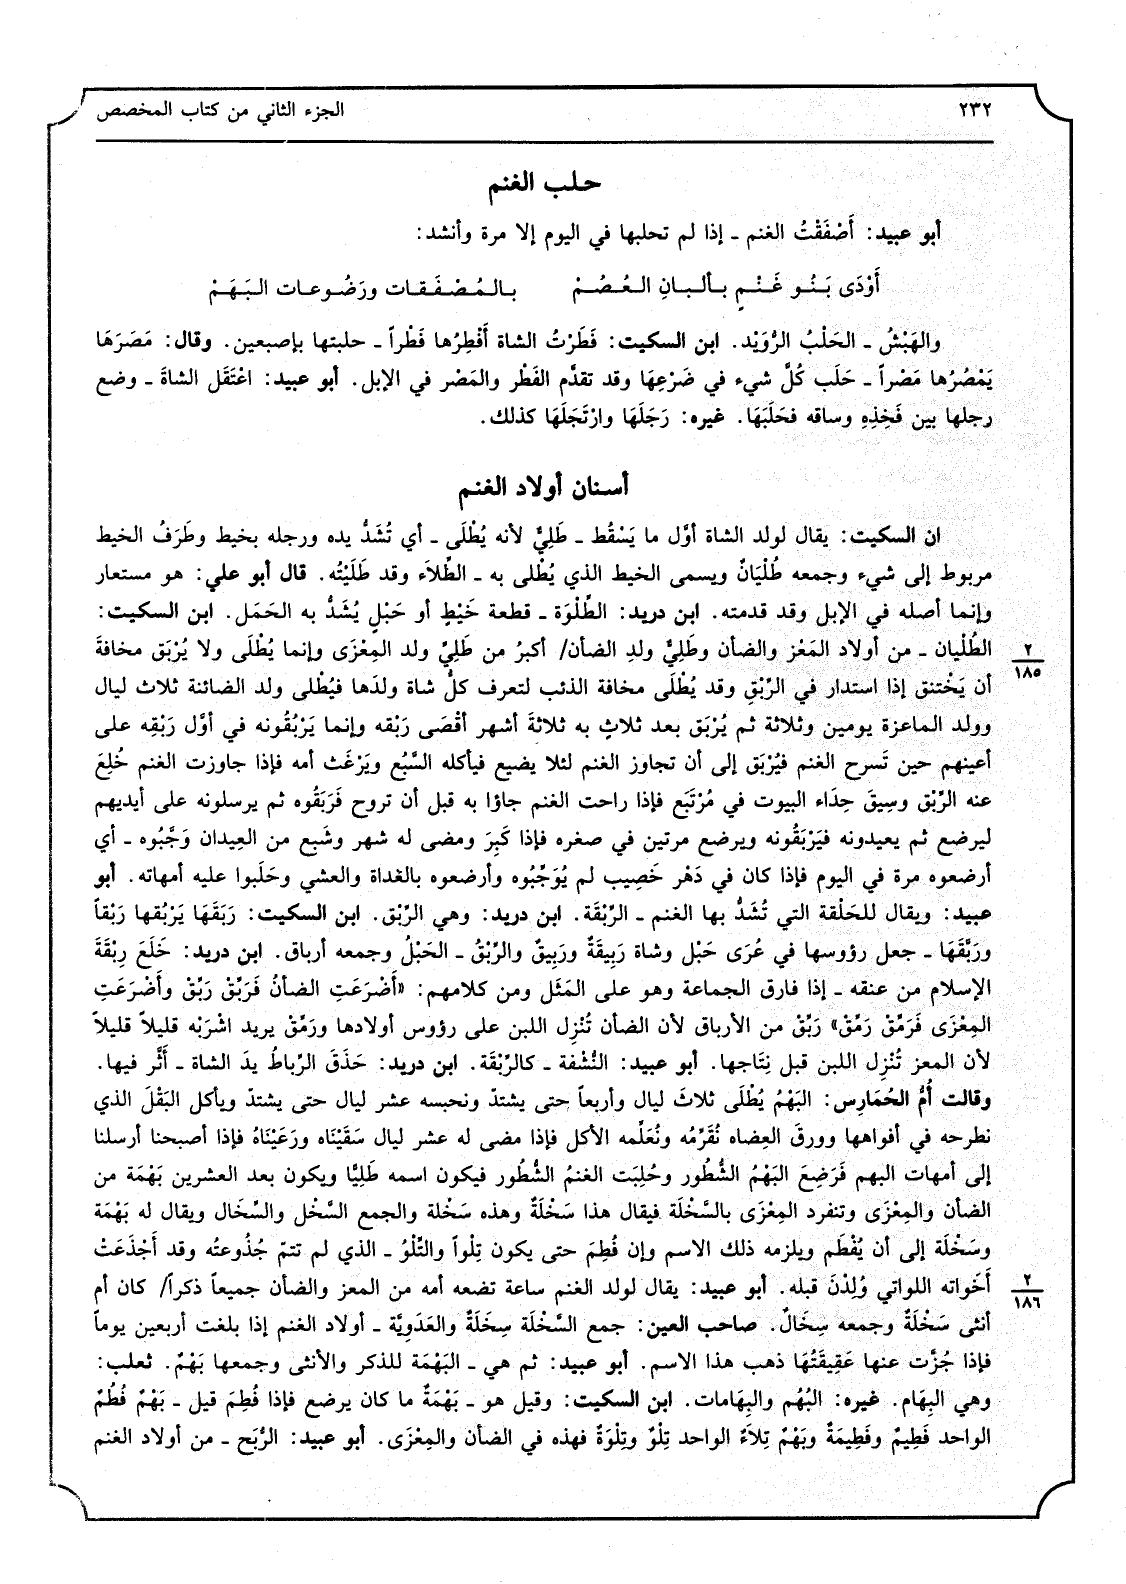 ٢٣٢
الجزء الثاني من كتاب المخصص
حلب الغنم
أبو عبيد: أَصْفَقْتُ الغنم ـ إذا لم تحلبها في اليوم إلا مرة وأنشد:
أَوْدَى بَنُو غَنْمٍ بألبانِ العُصُمْ بالمُصْفَقات ورَضُوعات البَهَمْ
والهَبْشُ ـ الحَلْبُ الرُّوَيْد. ابن السكيت: فَطَرْتُ الشاة أَفْطِرُها فَطْراً ـ حلبتها بإصبعين. وقال: مَصَرَهَا
يَمْصُرُها مَصْراً ـ حَلَب كُلَّ شيء في ضَرْعِهَا وقد تقدَّم الفَطْر والمَصْر في الإبل. أبو عبيد: اعْتَقَل الشاةَ ـ وضع
رجلها بين فَخِذِهِ وساقه فحَلَبَهَا. غيره: رَجَلَهَا وارْتَجَلَهَا كذلك.
أسنان أولاد الغنم
ان السكيت: يقال لولد الشاة أوَّل ما يَسْقُط ـ طَلِيٌّ لأنه يُطْلَى ـ أي تُشَدُّ يده ورجله بخيط وطَرَفُ الخيط
مربوط إلى شيء وجمعه طُلْيَانٌ ويسمى الخيط الذي يُطْلى به ـ الطِّلاَء وقد طَلَيْتُه. قال أبو علي: هو مستعار
وإنما أصله في الإبل وقد قدمته. ابن دريد: الطِّلْوَة ـ قطعة خَيْطٍ أو حَبْلٍ يُشَدُّ به الحَمَل. ابن السكيت:
الطُلْيان ـ من أولاد المَعْز والضأن وطَلِيٌّ ولدِ الضأن/ أكبرُ من طَلِيِّ ولد المِعْزَى وإنما يُطْلَى ولا يُرْبَق مخافةَ
٢
١٨٥
أن يَخْتنق إذا استدار في الرِّبْقِ وقد يُطْلَى مخافة الذئب لتعرف كلُّ شاة ولدَها فيُطْلى ولد الضائنة ثلاث ليال
وولد الماعزة يومين وثلاثة ثم يُرْبَق بعد ثلاثٍ به ثلاثةَ أشهر أقْصَى رَبْقه وإنما يَرْبُقُونه في أوَّل رَبْقِه على
أعينهم حين تَسرح الغنم فيُرْبَق إلى أن تجاوز الغنم لئلا يضيع فيأكله السَّبُع ويَرْغَث أمه فإذا جاوزت الغنم خُلِعَ
عنه الرِّبْق وسِيقَ حِذَاء البيوت في مُرْتَبَع فإذا راحت الغنم جاؤا به قبل أن تروح فَرَبَقُوه ثم يرسلونه على أيديهم
ليرضع ثم يعيدونه فيَرْبَقُونه ويرضع مرتين في صغره فإذا كَبِرَ ومضى له شهر وشَبِع من العِيدان وَجَّبُوه ـ أي
أرضعوه مرة في اليوم فإذا كان في دَهْر خَصِيب لم يُوَجِّبُوه وأرضعوه بالغداة والعشي وحَلَبوا عليه أمهاته. أبو
عبيد: ويقال للحَلْقة التي تُشَدُّ بها الغنم ـ الرِّبْقَة. ابن دريد: وهي الرِّبْق. ابن السكيت: رَبَقَهَا يَرْبُقها رَبْقاً
ورَبَّقَهَا ـ جعل رؤوسها في عُرَى حَبْل وشاة رَبِيقَةٌ ورَبِيقٌ والرِّبْقُ ـ الحَبْلُ وجمعه أرباق. ابن دريد: خَلَعَ رِبْقَةَ
الإسلام من عنقه ـ إذا فارق الجماعة وهو على المَثَل ومن كلامهم: «أَضْرَعَتِ الضأنُ فَرَبِّقْ رَبِّقْ وأَضْرَعَتِ
المِعْزَى فَرَمِّقْ رَمِّقْ» رَبِّقْ من الأرباق لأن الضأن تُنْزِل اللبن على رؤوس أولادها ورَمِّقْ يريد اشْرَبْه قليلاً قليلاً
لأن المعز تُنْزِل اللبن قبل نِتَاجها. أبو عبيد: النُّشْفة ـ كالرِّبْقَة. ابن دريد: حَذَقَ الرِّباطُ يدَ الشاة ـ أثَّر فيها.
وقالت أُمُّ الحُمَارِس: البَهْمُ يُطْلَى ثلاثَ ليال وأربعاً حتى يشتدّ ونحبسه عشر ليال حتى يشتدّ ويأكل البَقْلَ الذي
نطرحه في أفواهها وورقَ العِضاه نُقَرِّمُه ونُعَلِّمه الأكل فإذا مضى له عشر ليال سَقَيْنَاه ورَعَيْنَاهُ فإذا أصبحنا أرسلنا
إلى أمهات البهم فَرَضِعَ البَهْمُ الشُّطُور وحُلِبَت الغنمُ الشُّطُور فيكون اسمه طَلِيًّا ويكون بعد العشرين بَهْمَة من
الضأن والمِعْزَى وتنفرد المِعْزَى بالسَّخْلَة فيقال هذا سَخْلَةٌ وهذه سَخْلة والجمع السَّخْل والسِّخَال ويقال له بَهْمَة
وسَخْلَة إلى أن يُفْطَم ويلزمه ذلك الاسم وإن فُطِمَ حتى يكون تِلْواً والتِّلْوُ ـ الذي لم تتمّ جُذُوعتُه وقد أَجْذَعَتْ
أَخَواته اللواتي وُلِدْنَ قبله. أبو عبيد: يقال لولد الغنم ساعة تضعه أمه من المعز والضأن جميعاً ذكراً/ كان أم
٢
١٨٦
أنثى سَخْلَةٌ وجمعه سِخَالٌ. صاحب العين: جمع السَّخْلَة سِخَلَةٌ والعَدَوِيَّة ـ أولاد الغنم إذا بلغت أربعين يوماً
فإذا جُزَّت عنها عَقِيقَتُهَا ذهب هذا الاسم. أبو عبيد: ثم هي ـ البَهْمَة للذكر والأنثى وجمعها بَهْمٌ. ثعلب:
وهي البِهَام. غيره: البُهُم والبِهَامات. ابن السكيت: وقيل هو ـ بَهْمَةٌ ما كان يرضع فإذا فُطِمَ قيل ـ بَهْمٌ فُطُمٌ
الواحد فَطِيمٌ وفَطِيمَةٌ وبَهْمٌ تِلاَءٌ الواحد تِلْوٌ وتِلْوَةٌ فهذه في الضأن والمِعْزَى. أبو عبيد: الرُّبَح ـ من أولاد الغنم